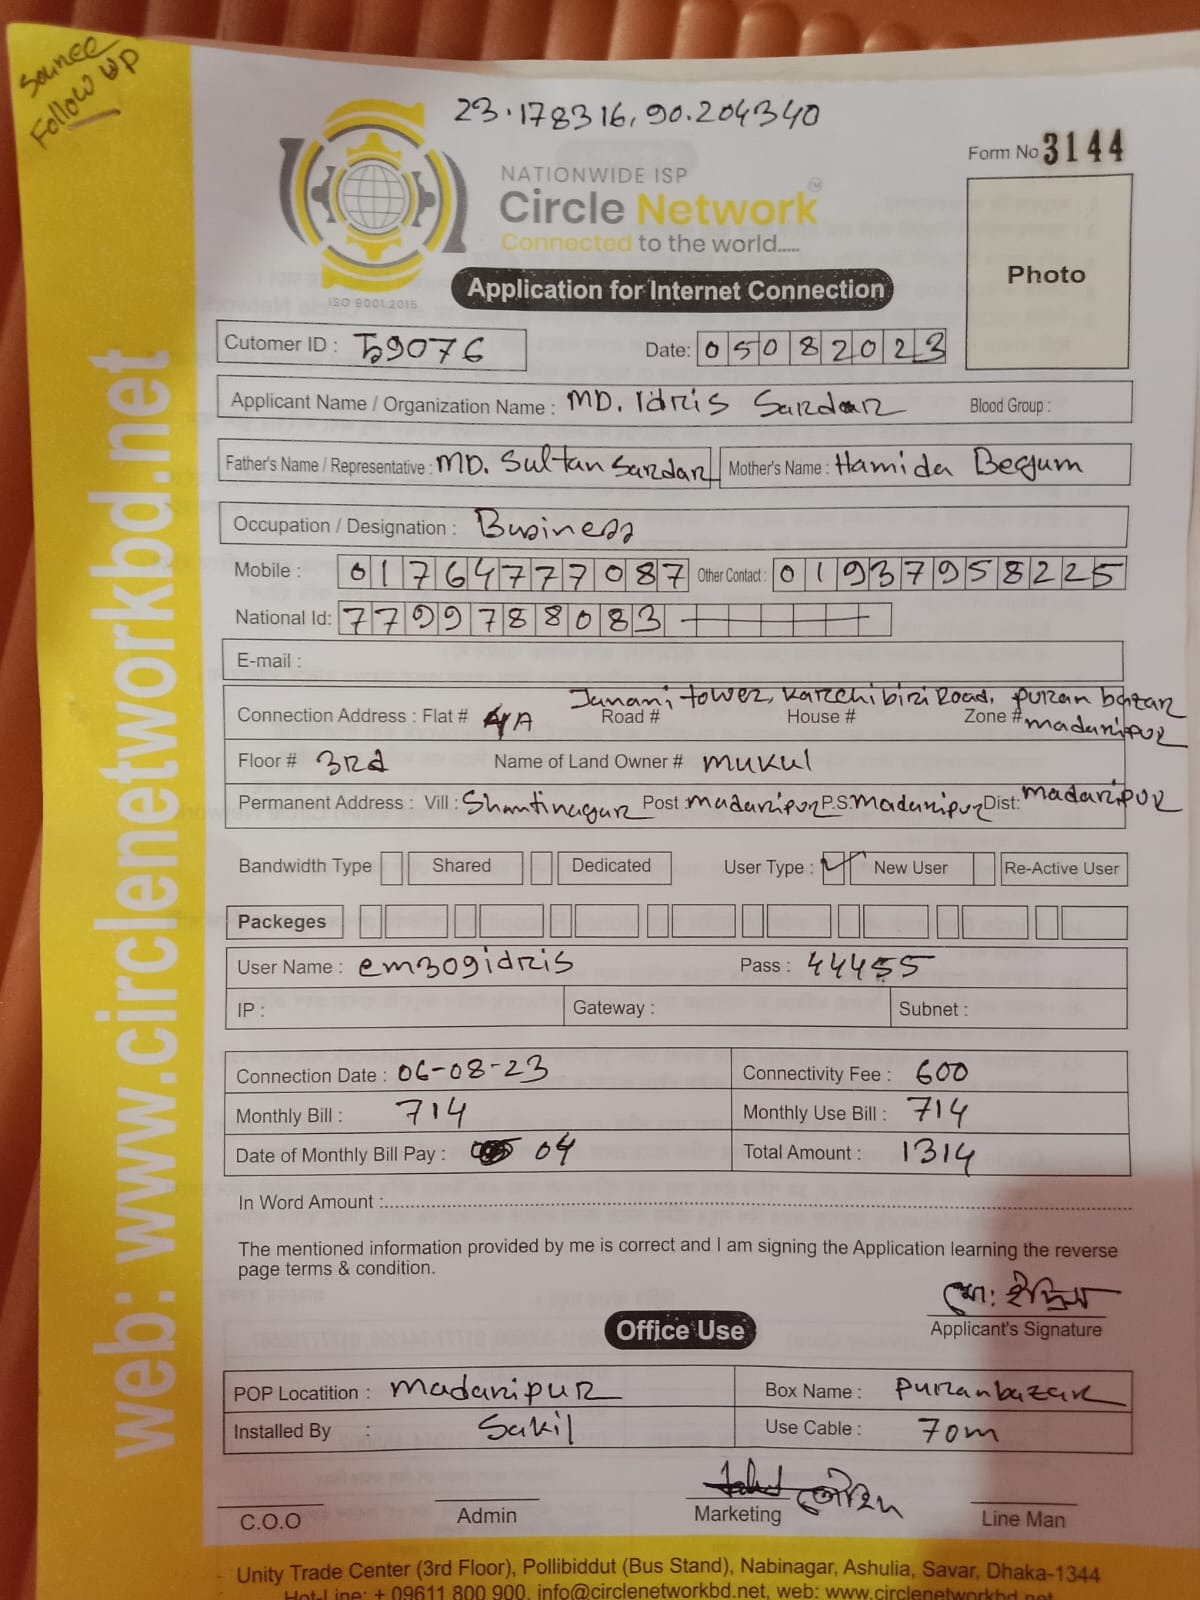 Source
Follow up
23.178316, 90.204340
Form No 3144
NATIONWIDE ISP
Circle Network TM
Connected to the world.....
ISO 9001:2015
Photo
Application for Internet Connection
Cutomer ID : 59076
Date: 05082023
Applicant Name / Organization Name : MD. Idris Sardar Blood Group :
Father's Name / Representative : MD. Sultan Sardar Mother's Name : Hamida Begum
Occupation / Designation : Business
Mobile : 01764777087 Other Contact : 01937958225
National Id: 7799788083
E-mail :
Janani tower, Karchi biri Road, puran bazar
Connection Address : Flat # 4A Road # House # Zone # madaripur
Floor # 3rd Name of Land Owner # mukul
Permanent Address : Vill : Shantinagar Post : madaripur P.S: Madaripur Dist: madaripur
Bandwidth Type Shared Dedicated User Type : New User Re-Active User
Packeges
User Name : em309idris Pass : 44455
IP : Gateway : Subnet :
Connection Date : 06-08-23 Connectivity Fee : 600
Monthly Bill : 714 Monthly Use Bill : 714
Date of Monthly Bill Pay : 04 Total Amount : 1314
In Word Amount :
The mentioned information provided by me is correct and I am signing the Application learning the reverse
page terms & condition.
মো: ইদ্রিস
Applicant's Signature
Office Use
POP Locatition : madaripur Box Name : Puranbazar
Installed By : Sakil Use Cable : 70m
C.O.O Admin Marketing Line Man
Unity Trade Center (3rd Floor), Pollibiddut (Bus Stand), Nabinagar, Ashulia, Savar, Dhaka-1344
Hot-Line: + 09611 800 900, info@circlenetworkbd.net, web: www.circlenetworkbd.net
web: www.circlenetworkbd.net